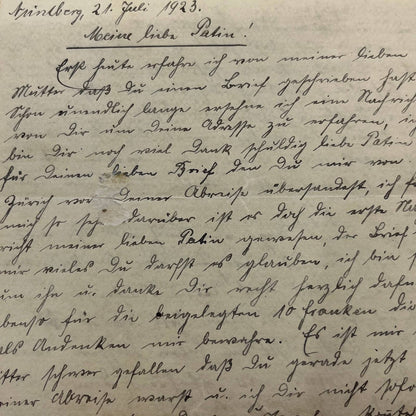 Nürnberg, 21. Juli 1923.
Meine liebe Patin!
Erst heute erfahre ich von meiner lieben
Mutter daß Du einen Brief geschrieben hast
Schon unendlich lange ersehne ich eine Nachricht
von Dir um Deine Adresse zu erfahren, i
bin Dir noch viel Dank schuldig liebe Patin
für Deinen lieben Brief den Du mir von
Zürich vor Deiner Abreise übersandest, ich f
mich so sehr darüber ist es doch die erste Na
richt meiner lieben Patin gewesen, der Brief
mir vieles Du darfst es glauben, ich bin s
um ihn u. danke Dir recht herzlich dafü
ebenso für die beigelegten 10 Franken die
als Andenken mir bewahre. Es ist mir
bitter schwer gefallen daß Du gerade jetzt
einer Abreise warst u. ich Dir nicht sofo